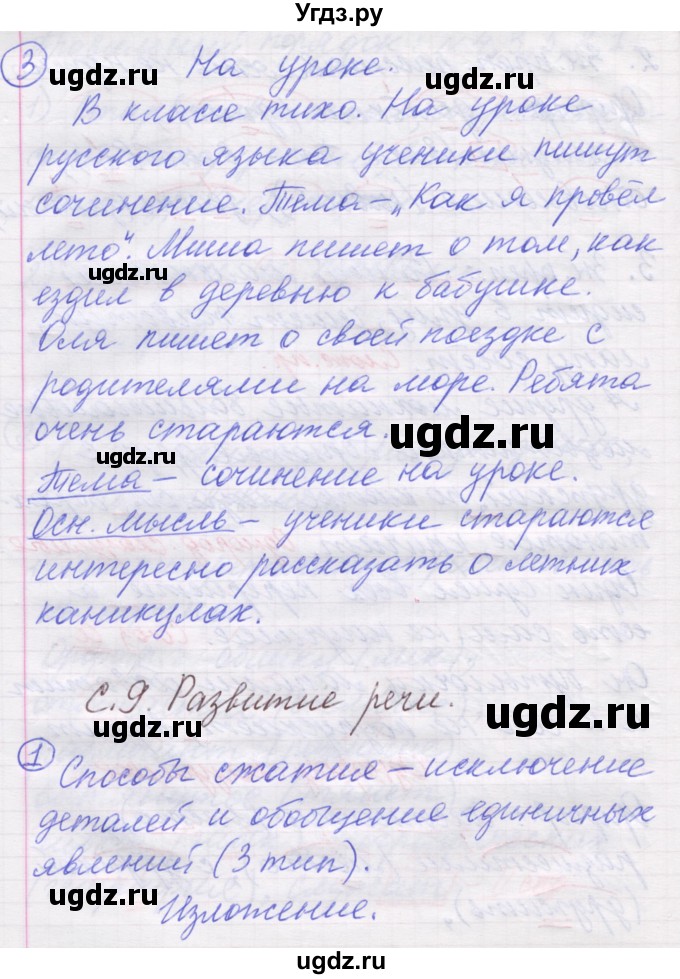 Угдз.ру
3 На уроке.
В классе тихо. На уроке
русского языка ученики пишут
сочинение. Тема – „Как я провёл
лето". Миша пишет о том, как
ездил в деревню к бабушке.
Оля пишет о своей поездке с
родителями на море. Ребята
очень стараются.
Тема – сочинение на уроке.
Осн. мысль – ученики стараются
интересно рассказать о летних
каникулах.
С. 9. Развитие речи.
1 Способы сжатия – исключение
деталей и обобщение единичных
явлений (3 тип).
Изложение.
ugdz.ru
ugdz.ru
ugdz.ru
ugdz.ru
ugdz.ru
ugdz.ru
ugdz.ru
ugdz.ru
ugdz.ru